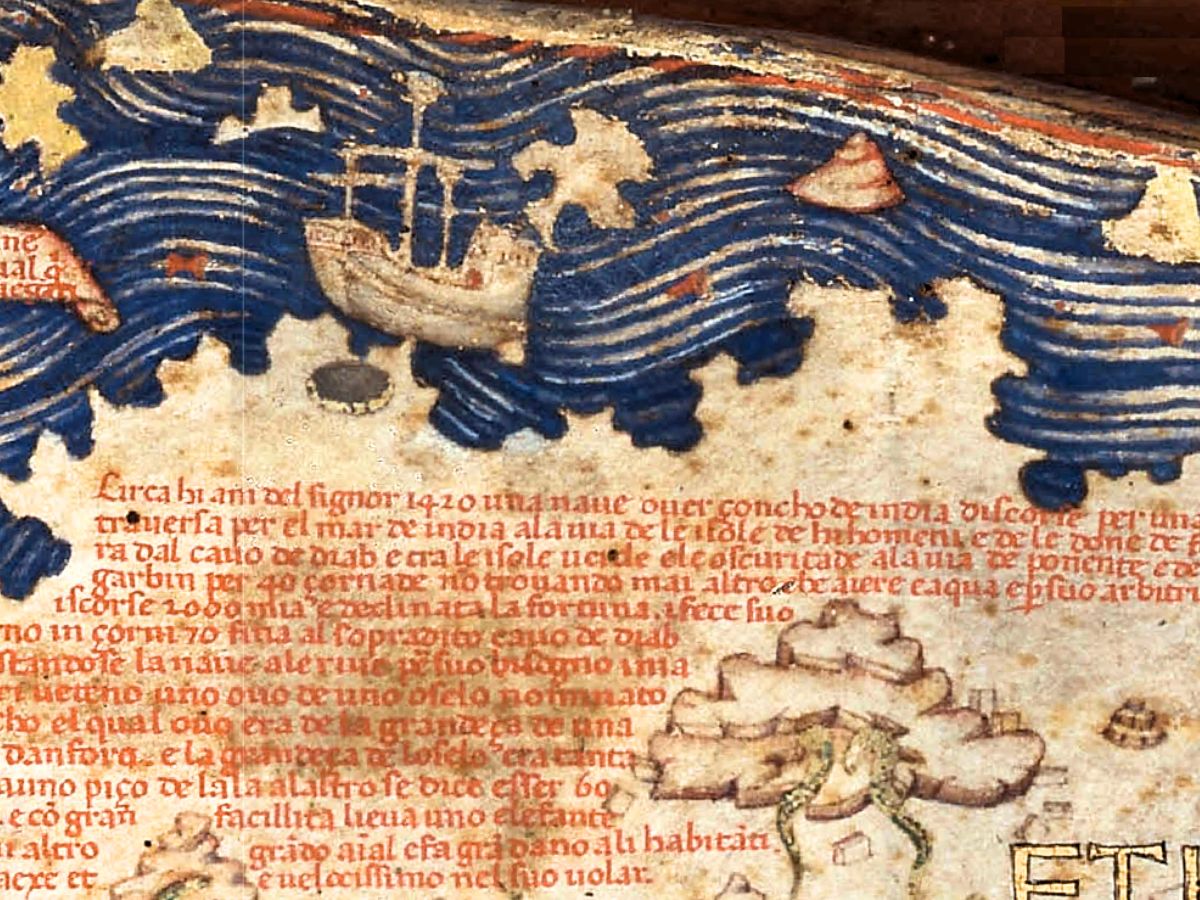 ne
ual q̄
uesta
Circa hi ani del signor 1420 una naue ouer çoncho de india discorse per una
trauersa per el mar de india a la uia de le isole de hi homeni e de le done de
ra dal cauo de diab e tra le isole uerde e le oscuritade a la uia de ponente e de
garbin per 40 çornade no trouando mai altro che aiere e aqua e p̱ suo arbitri
iscorse 2000 mia e declinata la fortuna i fece suo
no in çorni 70 fina al sopradito cauo de diab
standose la naue a le riue p̱ suo bisogno i ma
ueteno uno ouo de uno oselo nominato
cho el qual ouo era de la grandeça de una
danforᶏ. e la grandeça de loselo era tanta
uno piço de lala alaltro se dice esser 60
. e cō gran facillita lieua uno elefante
altro grādo aīal e fa gra dano a li habitāti
et e uelocissimo nel suo uolar.
ETI